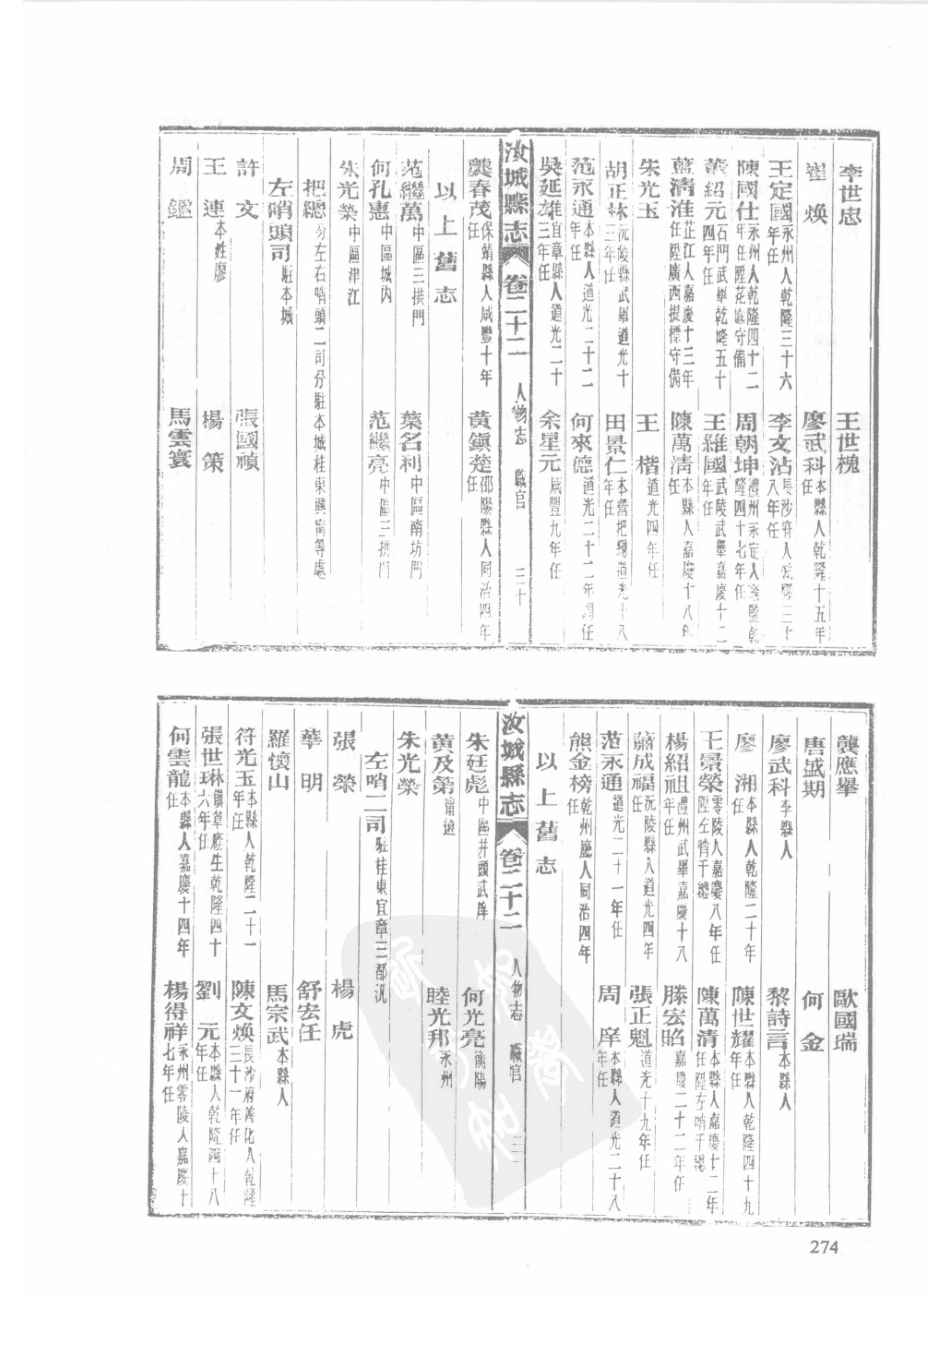 李世忠 王世槐
崔煥 廖武科本縣人乾隆十五年任
王定國永州人乾隆三十六年任 李文沾長沙府人乾隆三十八年任
陳國仕永州人乾隆四十二年任陞花守備 周朝坤澧州永定人乾隆四十七年任
蕭紹元石門武舉乾隆五十四年任 王維國武陵武舉嘉慶十二年任
藍濤淮芷江人嘉慶十三年任陞廣西提標守備 陳萬清本縣人嘉慶十八年任
朱光玉 王楷道光四年任
胡正林沅陵縣武舉道光十三年任 田景仁本營把總道光十八年任
范永通本縣人道光二十二年任 何來德道光二十二年調任
吳延雄宜章縣人道光二十三年任 余星元咸豐九年任
汝城縣志 卷二十二 人物志 職官 三十
龔春茂保靖縣人咸豐十年任 黃鎭楚邵陽縣人同治四年任
以上舊志
范繼萬中區三拱門 葉名利中區南坊門
何孔惠中區城内 范繼亮中區三拱門
朱光榮中區津江
把總分左右哨頭二司分駐本城桂東興甯等處
左哨頭司駐本城
許文 張國禎
王連本姓廖 楊策
周鑑 馬雲寰
龔應舉 歐國瑞
唐盛期 何金
廖武科本縣人 黎詩言本縣人
廖湘本縣人乾隆二十年任 陳世耀本縣人乾隆四十九年任
王景榮零陵人嘉慶八年任陞左哨千總 陳萬清本縣人嘉慶十二年任陞左哨千總
楊紹祖澧州武舉嘉慶十八年任 滕宏昭嘉慶二十二年任
蕭成福沅陵縣人道光四年任 張正魁道光十九年任
范永通道光二十一年任 周庠本縣人道光二十八年任
熊金榜乾州廳人同治四年任
以上舊志
汝城縣志 卷二十二 人物志 職官
朱廷彪中區井頭武庠 何光亮衡陽
黃及第甯遠 睦光邦永州
朱光榮
左哨二司駐桂東宜章三都汛
張榮 楊虎
華明 舒宏任
羅懷山 馬宗武本縣人
符光玉本縣人乾隆二十一年任 陳文煥長沙府善化人乾隆三十一年任
張世琳鎭草廳生乾隆四十六年任 劉元本縣人乾隆四十八年任
何雲龍本縣人嘉慶十四年任 楊得祥永州零陵人嘉慶十七年任
274